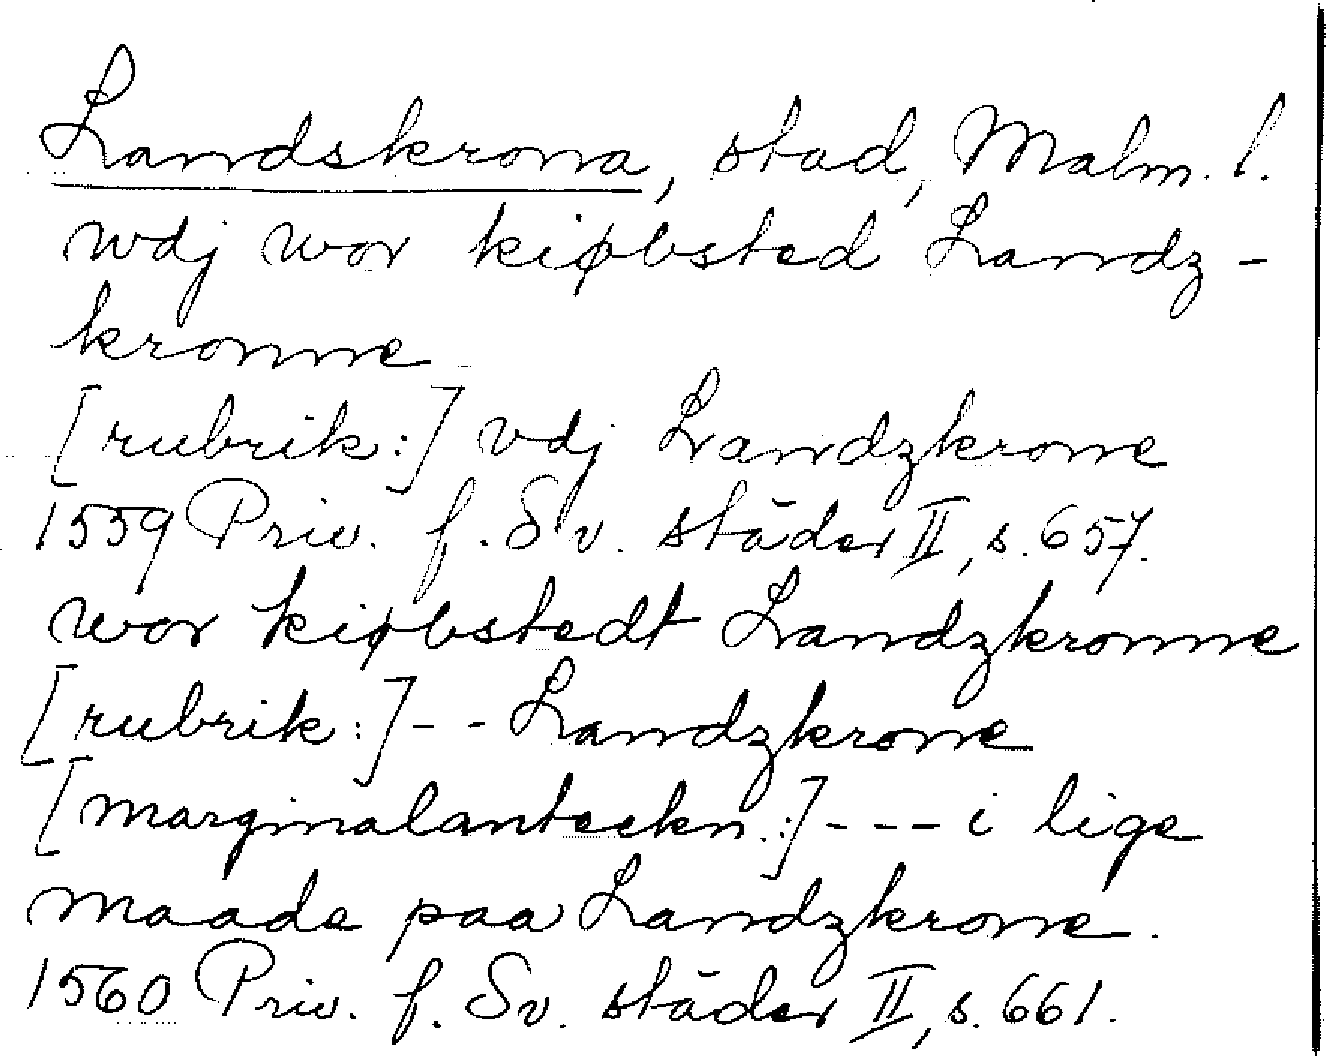 Landskrona, stad, Malm. l.
wdj wor kiøbsted Landz-
kronne
[rubrik:] vdj Landzkrone
1559 Priv. f. Sv. städer II, s. 657.
wor kiøbstedt Landzkronne
[rubrik:] - - Landzkrone
[marginalanteckn.:] - - - i lige
maade paa Landzkrone.
1560 Priv. f. Sv. städer II, s. 661.